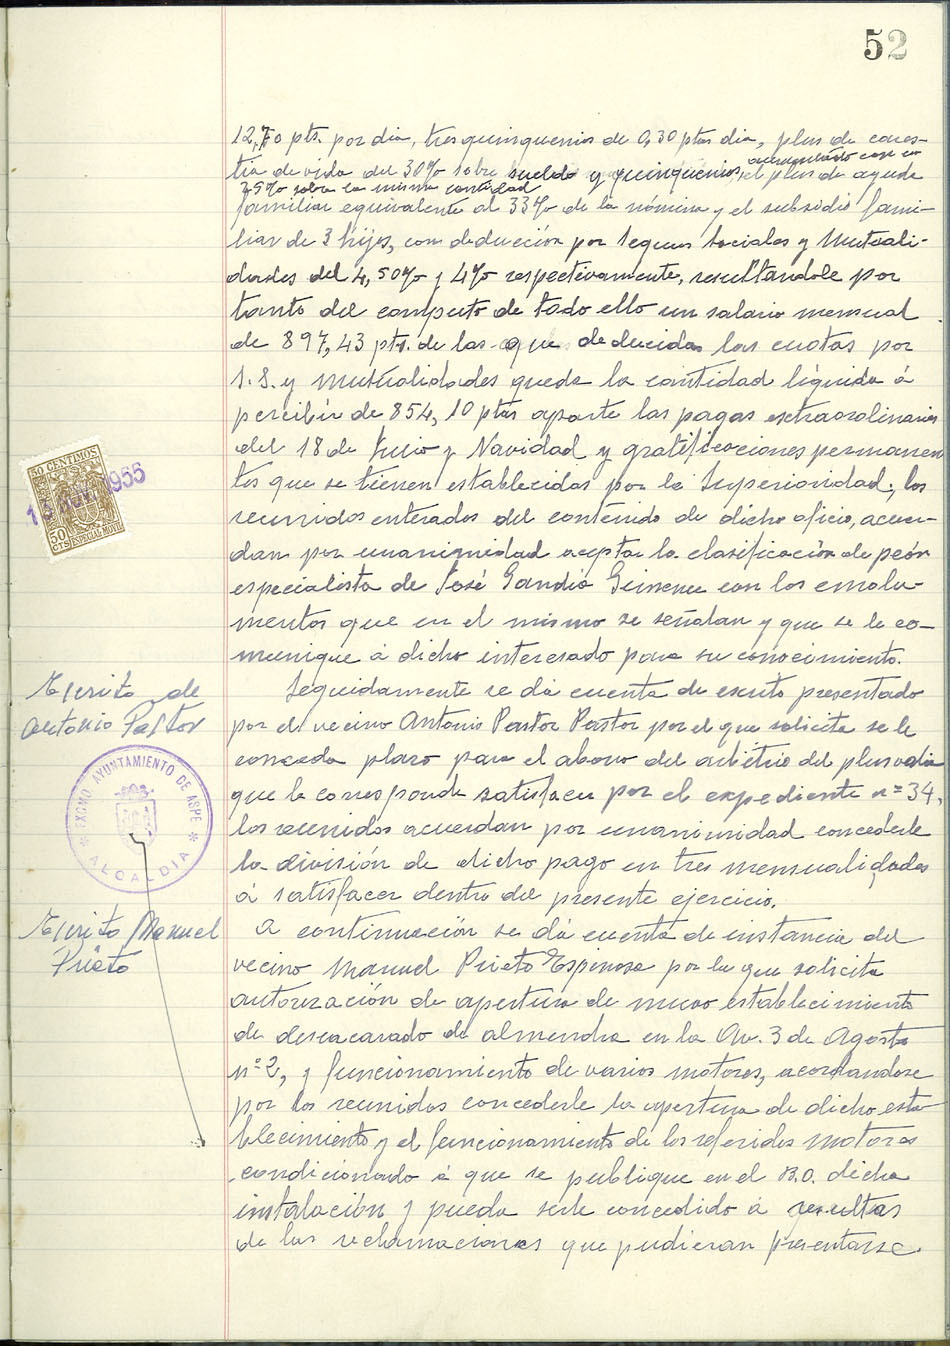 52
12,70 pts. por dia, tres quinquenios de 0,30 ptas dia, plus de cares-
tia de vida del 30% sobre sueldo y quinquenios, el plus de ayuda
acumulado con un
25% sobre la misma cantidad
familiar equivalente al 33% de la nómina y el subsidio fami-
liar de 3 hijos, con deducción por Seguros Sociales y Mutuali-
dades del 4,50% y 4% respectivamente, resultandole por
tanto del computo de todo ello un salario mensual
de 897,43 pts. de las que deducidas las cuotas por
S.S. y Mutualidades queda la cantidad líquida á
percibir de 854,10 ptas aparte las pagas extraordinarias
del 18 de Julio y Navidad y gratificaciones permanen
tes que se tienen establecidas por la Superioridad; los
reunidos enterados del contenido de dicho oficio, acuer-
dan por unanimidad aceptar la clasificación de peón
especialista de José Gandía Gimenez con los emolu-
mentos que en el mismo se señalan y que se le co-
munique á dicho interesado para su conocimiento.
Escrito de
Antonio Pastor
Seguidamente se dá cuenta de escrito presentado
por el vecino Antonio Pastor Pastor por el que solicita se le
conceda plazo para el abono del arbitrio del plusvalia
que le corresponde satisfacer por el expediente nº 34,
los reunidos acuerdan por unanimidad concederle
la división de dicho pago en tres mensualidades
á satisfacer dentro del presente ejercicio.
Escrito Manuel
Prieto
A continuación se dá cuenta de instancia del
vecino Manuel Prieto Espinosa por la que solicita
autorización de apertura de nuevo establecimiento
de descascarado de almendra en la Av. 3 de Agosto
nº 2, y funcionamiento de varios motores, acordandose
por los reunidos concederle la apertura de dicho esta
blecimiento y el funcionamiento de los referidos motores
condicionado á que se publique en el B.O. dicha
instalación y pueda serle concedido á resultas
de las reclamaciones que pudieran presentarse.
50 CENTIMOS
NOV. 1955
50
CTS
ESPECIAL MOVIL
EXCMO AYUNTAMIENTO DE ASPE
ALCALDIA